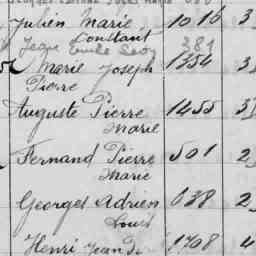 Julien Marie 1016 3
Constant
Jean Emile Leroy 381
Marie Joseph 1354 3
Pierre
Auguste Pierre 1455
Marie
Fernand Pierre 501 2
Marie
Georges Adrien 638 2
Louis
Henri Jean 1708 4